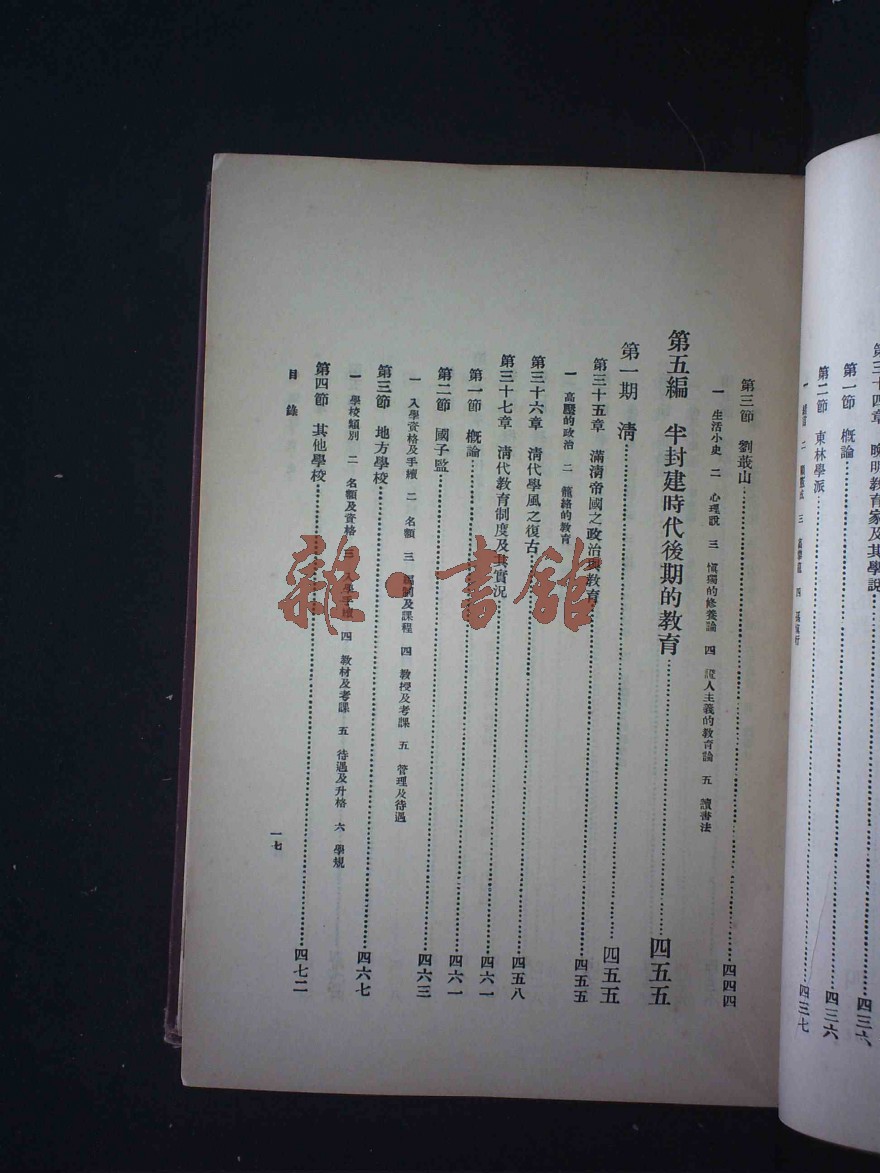 第三十四章　晚明教育家及其學說……四三六
第一節　概論……四三六
第二節　東林學派……四三七
第三節　劉蕺山……四四四
一　生活小史　二　心理說　三　慎獨的修養論　四　證人主義的教育論　五　讀書法
第五編　半封建時代後期的教育……四五五
第一期　清……四五五
第三十五章　滿清帝國之政治與教育……四五五
一　高壓的政治　二　籠絡的教育
第三十六章　清代學風之復古……四五八
第三十七章　清代教育制度及其實況……四六一
第一節　概論……四六一
第二節　國子監……四六三
一　入學資格及手續　二　名額　三　編制及課程　四　教授及考課　五　管理及待遇
第三節　地方學校……四六七
一　學校類別　二　名額及資格　三　入學手續　四　教材及考課　五　待遇及升格　六　學規
第四節　其他學校……四七二
目錄
一七
雜·書館